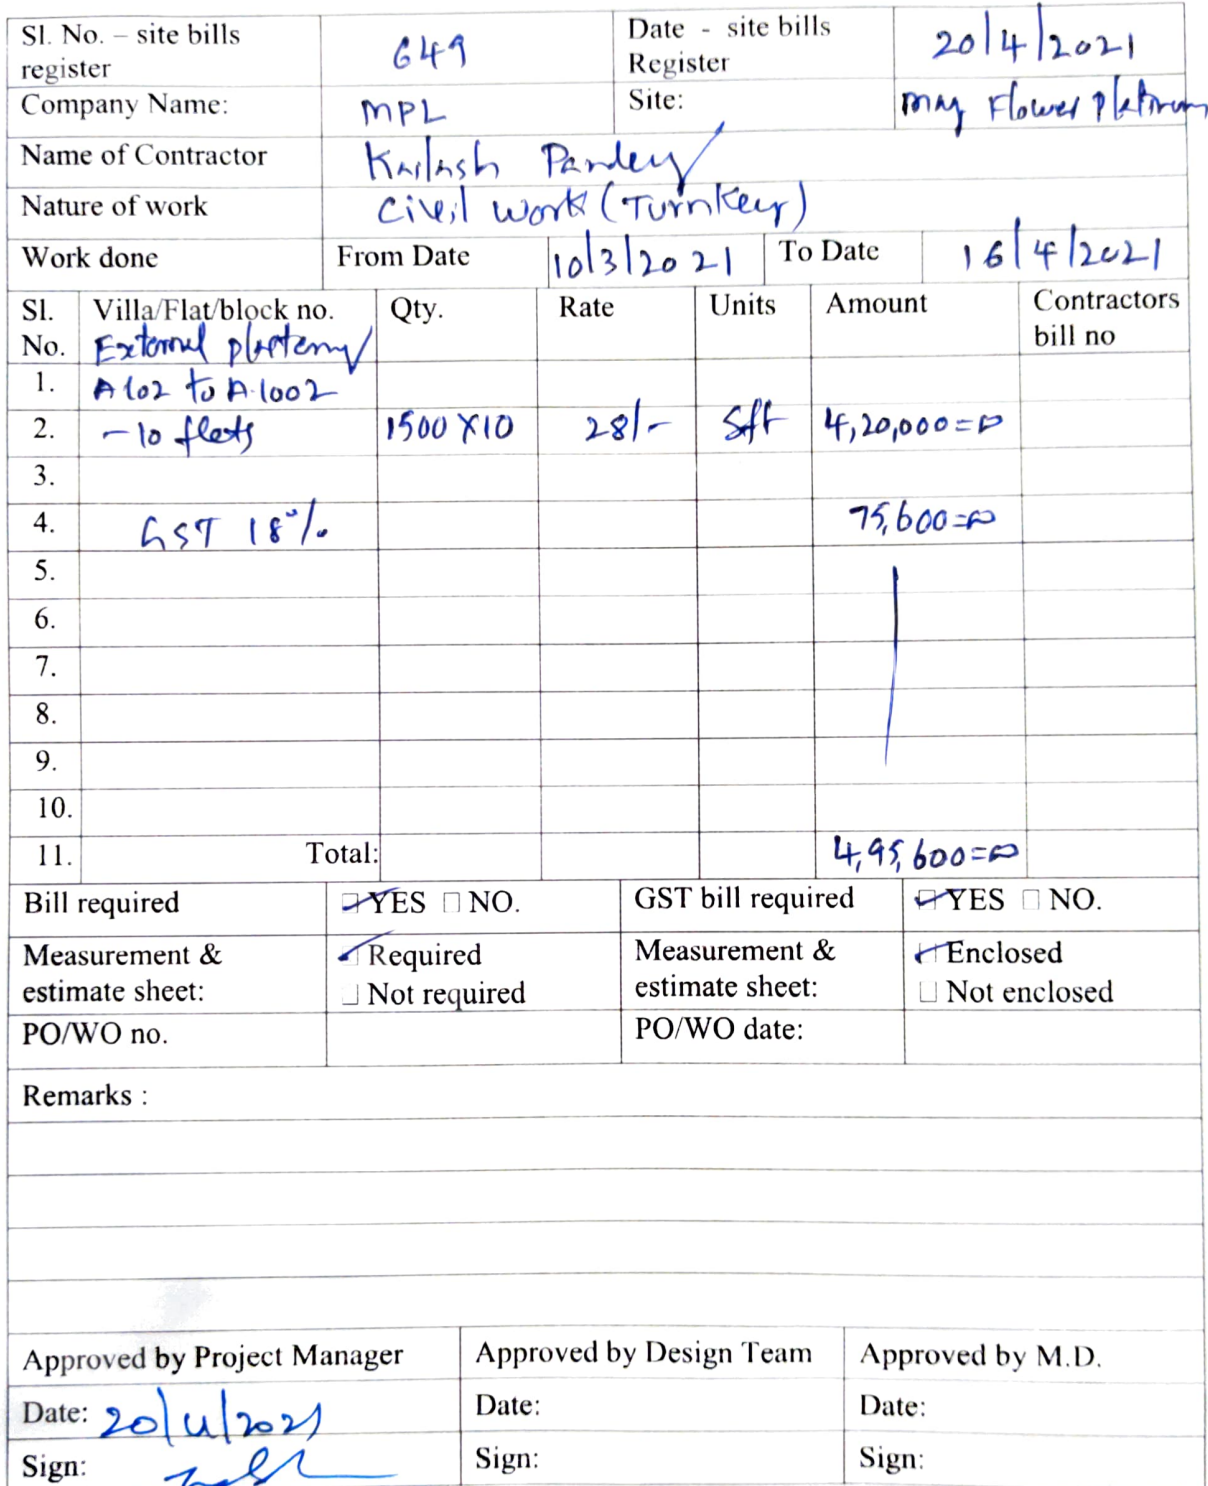 Sl. No. – site bills register 649 Date - site bills Register 20/4/2021
Company Name: MPL Site: May Flower Platinum
Name of Contractor Kailash Pandey
Nature of work Civil work (Turnkey)
Work done From Date 10/3/2021 To Date 16/4/2021
Sl. No. Villa/Flat/block no. Qty. Rate Units Amount Contractors bill no
External plastering
1. A 102 to A.1002
2. - 10 flats 1500 X 10 28/- Sft 4,20,000=00
3.
4. GST 18% 75,600=00
5.
6.
7.
8.
9.
10.
11. Total: 4,95,600=00
Bill required YES NO. GST bill required YES NO.
Measurement & estimate sheet: Required Not required Measurement & estimate sheet: Enclosed Not enclosed
PO/WO no. PO/WO date:
Remarks :
Approved by Project Manager Approved by Design Team Approved by M.D.
Date: 20/4/2021 Date: Date:
Sign: Sign: Sign: